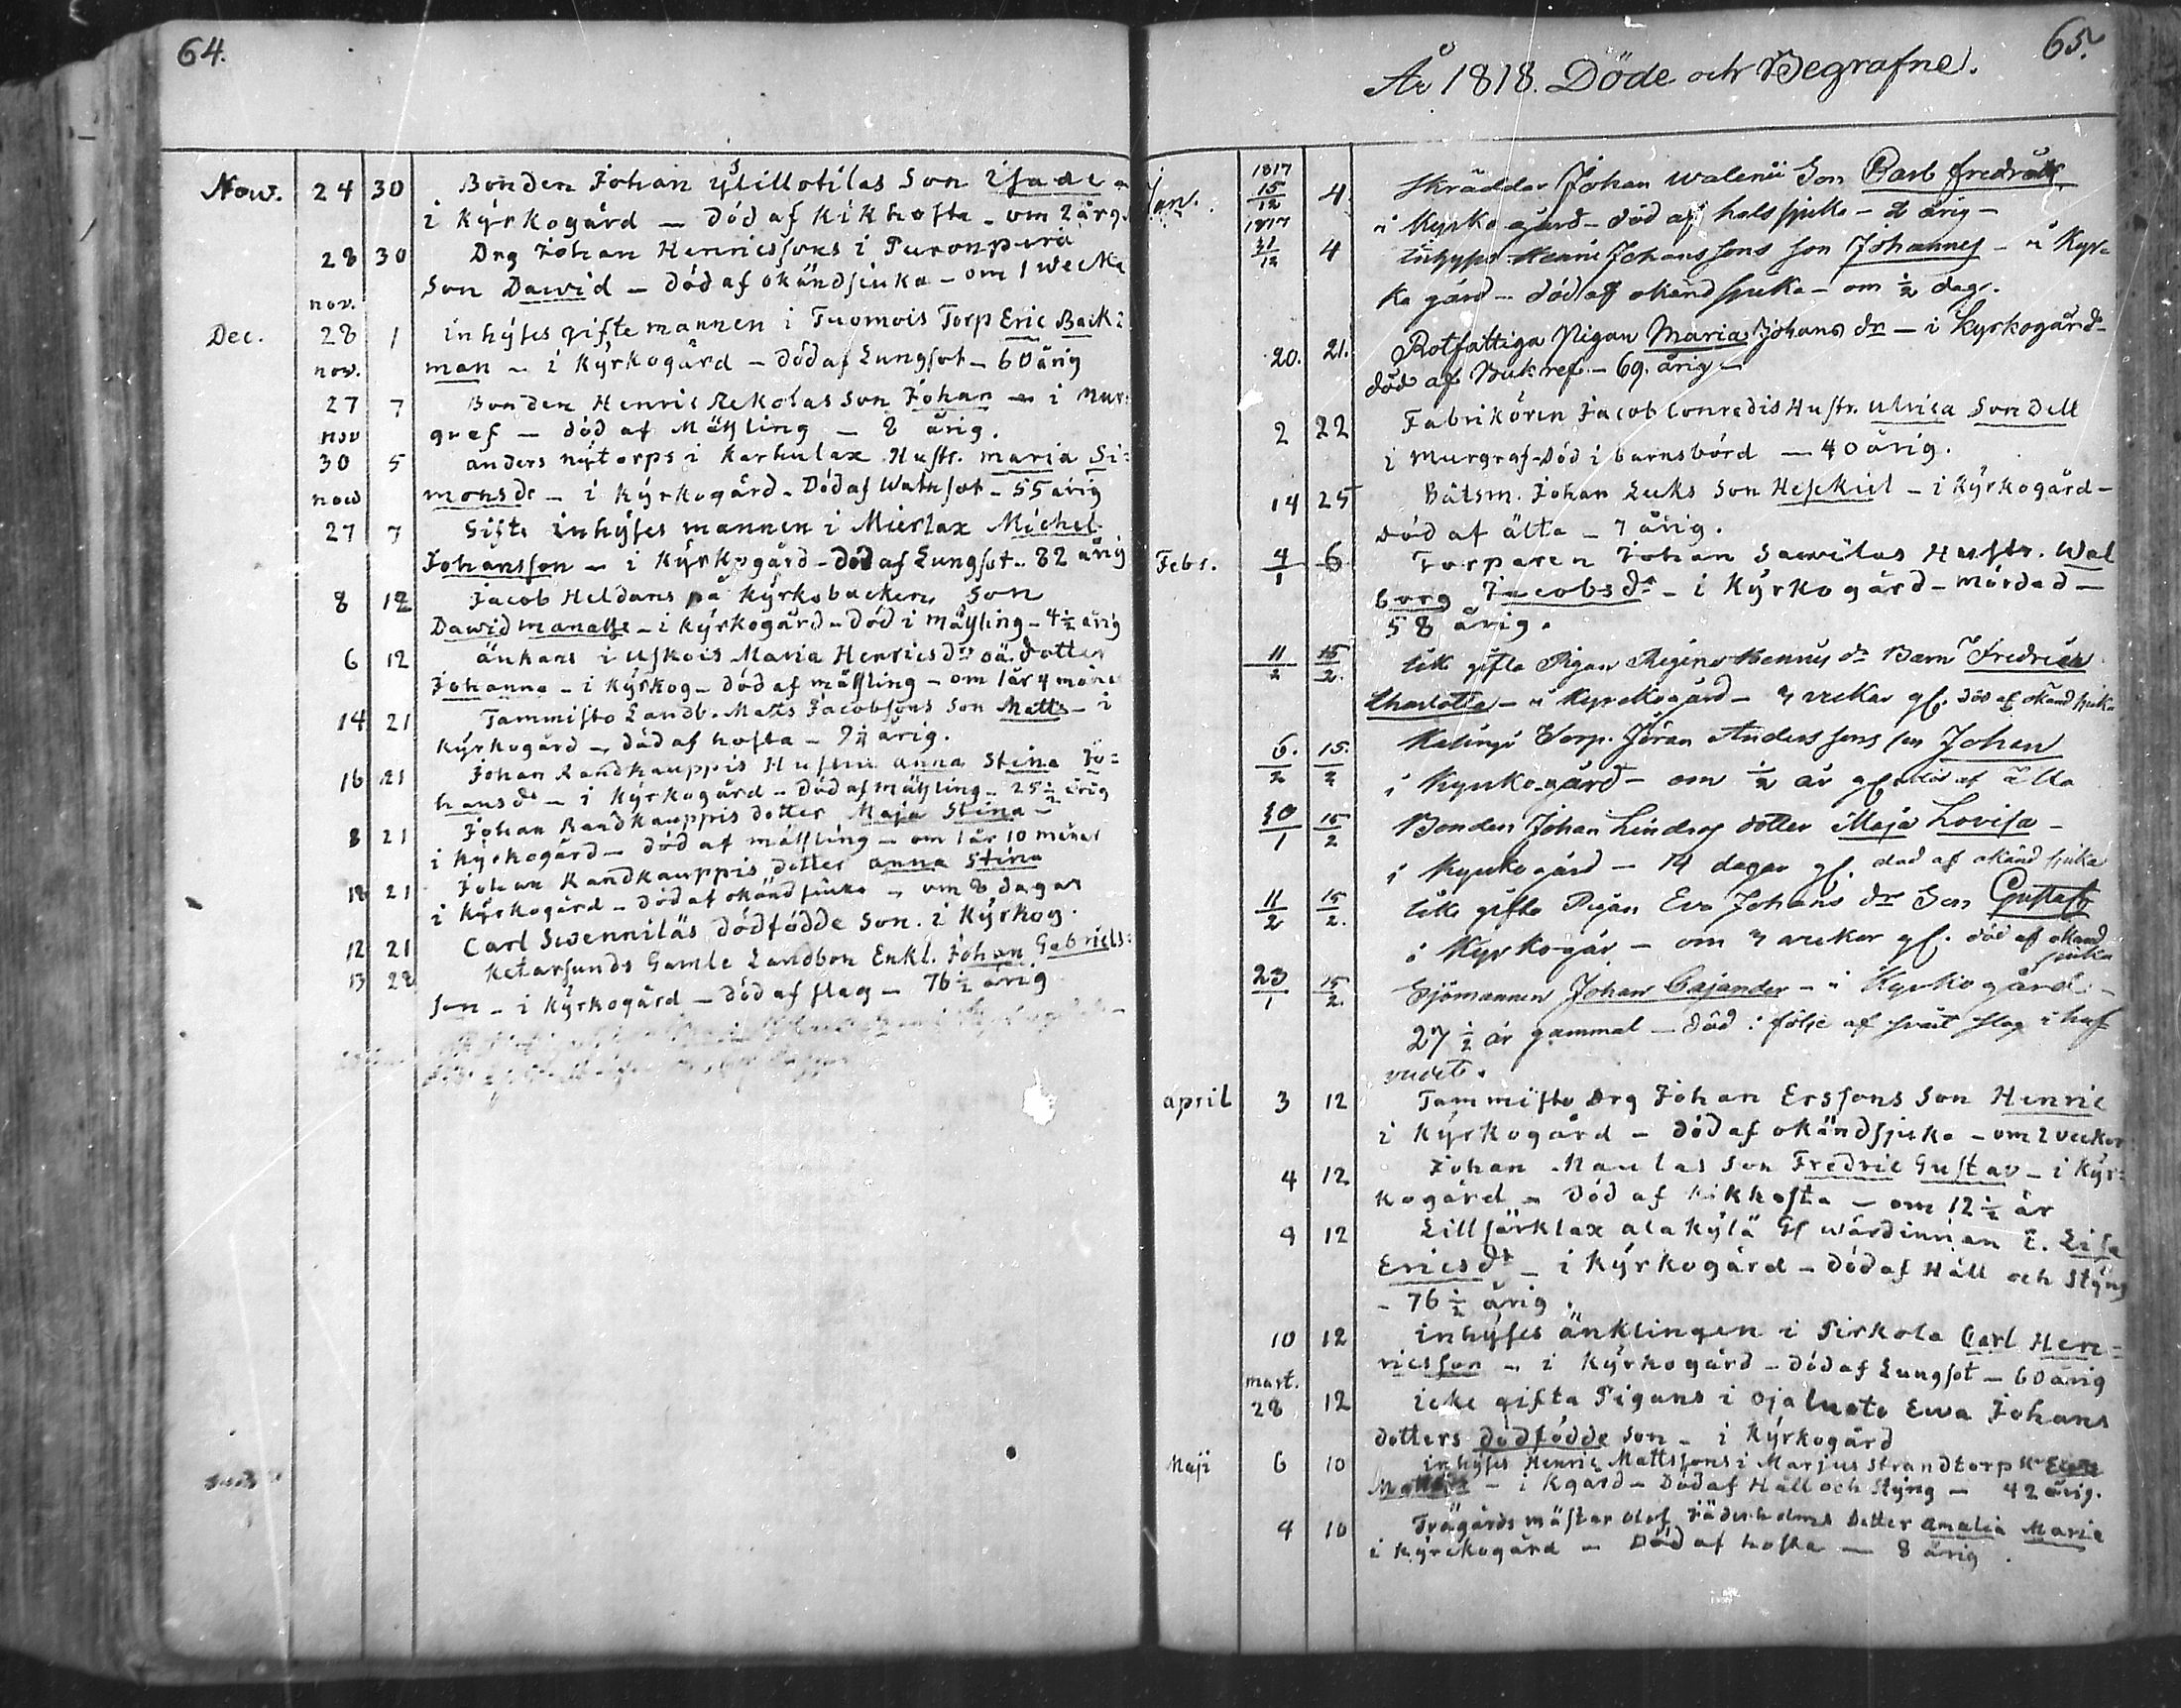 64.
Now. 24 30 Bonden Johan ylillotilas Son Isade
i Kyrkogård — död af Kikhosta - om 2 år
28 30 Drg Johan Henricssons i Puronperä
nov. Son Dawid — död af okändsiuka - om 1 wecka
Dec. 28 1 inhyses giftemannen i Tuomois Torp Eric Back=
nov. man - i Kyrkogård - död af Lungsot - 60 årig
27 7 Bonden Henric Rekolas Son Johan - i Mur=
nov graf — död af Mäsling — 8 årig.
30 5 anders nytorps i Karhulax Hustr. maria Si=
now monsdr - i Kyrkogård - Död af Watusot - 55 årig
27 7 Gifte inhyses mannen i Mierlax Michel
Johansson - i Kyrkogård - Död af Lungsot - 82 årig
8 12 Jacob Heldans på Kyrkobacken Son
Dawid manasse - i kyrkogård - Död i mäsling - 4½ årig
6 12 änkans i Uskois Maria Henricsdrs oä. dotter
Johanna - i Kyrkog - död af mässling - om 1 år 4 måna
14 21 Tammisto Landb. Matts Jacobsons Son Matts - i
Kyrkogård - död af hosta - årig.
16 21 Johan Randkauppis Hustru anna Stina Jo=
hansdr - i Kyrkogård - Död af mäsling - 25½ årig
8 21 Johan Randkauppis dotter Maja Stina -
i Kyrkogård - död af mässling - om 1 år 10 månar
18 21 Johan Randkauppis dotter anna Stina
i Kyrkogård - död af okändsiuka - om 8 dagar
12 21 Carl Swenniläs dödfödde Son. i Kyrkog.
13 22 Ketarsunds Gamle Landbon Enkl. Johan Gabriels=
son - i Kyrkogård - död af slag - 76½ årig
65.
År 1818. Döde och Begrafne.
Jan. 1817 15/12 4 Skräddar Johan Walenii Son Carl fredrik
i Kyrkogård - död af halssjuka - 2 årig -
1817 31/12 4 inhyses Henric Johanssons son Johannes - i Kyr-
ka gård - död af okänd sjuka - om ½ dag.
20. 21. Rotfattiga Pigan Maria Johans dr - i kyrkogård -
död af Bukref - 69. årig -
2 22 Fabrikören Jacob Conradis Hustr. Ulrica Sondell
i Murgraf - död i barnsbörd — 40 årig.
14 25 Båtsm. Johan Luks Son Heskiel - i Kyrkogård -
död af älta - 7 årig.
Febr. 4/1 6 Torparen Johan Sawilas Hustr. Wal
borg Jacobsdr - i Kyrkogård - mördad —
58 årig.
11/2 15/2. icke gifta Pigan Regina Hennys dr Barn Fredrica
Charlotta - i Kyrckogård - 3 veckor gl. död af okänd sjuka
6./2 15./2 Torp. Jöran Anderssons son Johan
i Kyrkogård - om ½ år gl. död af älta
30/1 15/2 Bonden Johan Lindrog dotter Maja Lovisa -
i Kyrkogård - 14 dagar gl. död af okänd sjuka
11/2 15/2. icke gifta Pigan Eva Johans dr Son Gustaf
i Kyrkogår - om 3 veckor gl. död af okänd
sjuka
23/1 15/2. Sjömannen Johan Cajander - i Kyrkogård -
27½ år gammal - död i följe af svårt slag i huf
vudet.
april 3 12 Tammisto Drg Johan Erssons Son Henric
i Kyrkogård - död af okändsjuka - om 2 veckor
4 12 Johan Maulas Son Fredric Gustav - i Kyr=
kogård - död af Kikhosta - om 12½ år
4 12 Lillsärklax alakylä Gl wärdinnan E. Lisa
Ericsdr - i Kyrkogård - död af Håll och Styng
- 76½ årig.
10 12 inhyses änklingen i Pirkola Carl Hen=
ricsson - i Kyrkogård - död af Lungsot - 60 årig
mart.
28 12 icke gifta Pigans i Ojaluoto Ewa Johans
dotters dödfödde Son - i Kyrkogård
Maji 6 10 inhyses Henric Mattssons i Marjus Strandtorp
- i Kgård - Död af Håll och Styng - 42 årig.
4 10 Trägårds mästar Olof dotter Amalia Maria
i Kyrckogård - Död af hosta - 8 årig.